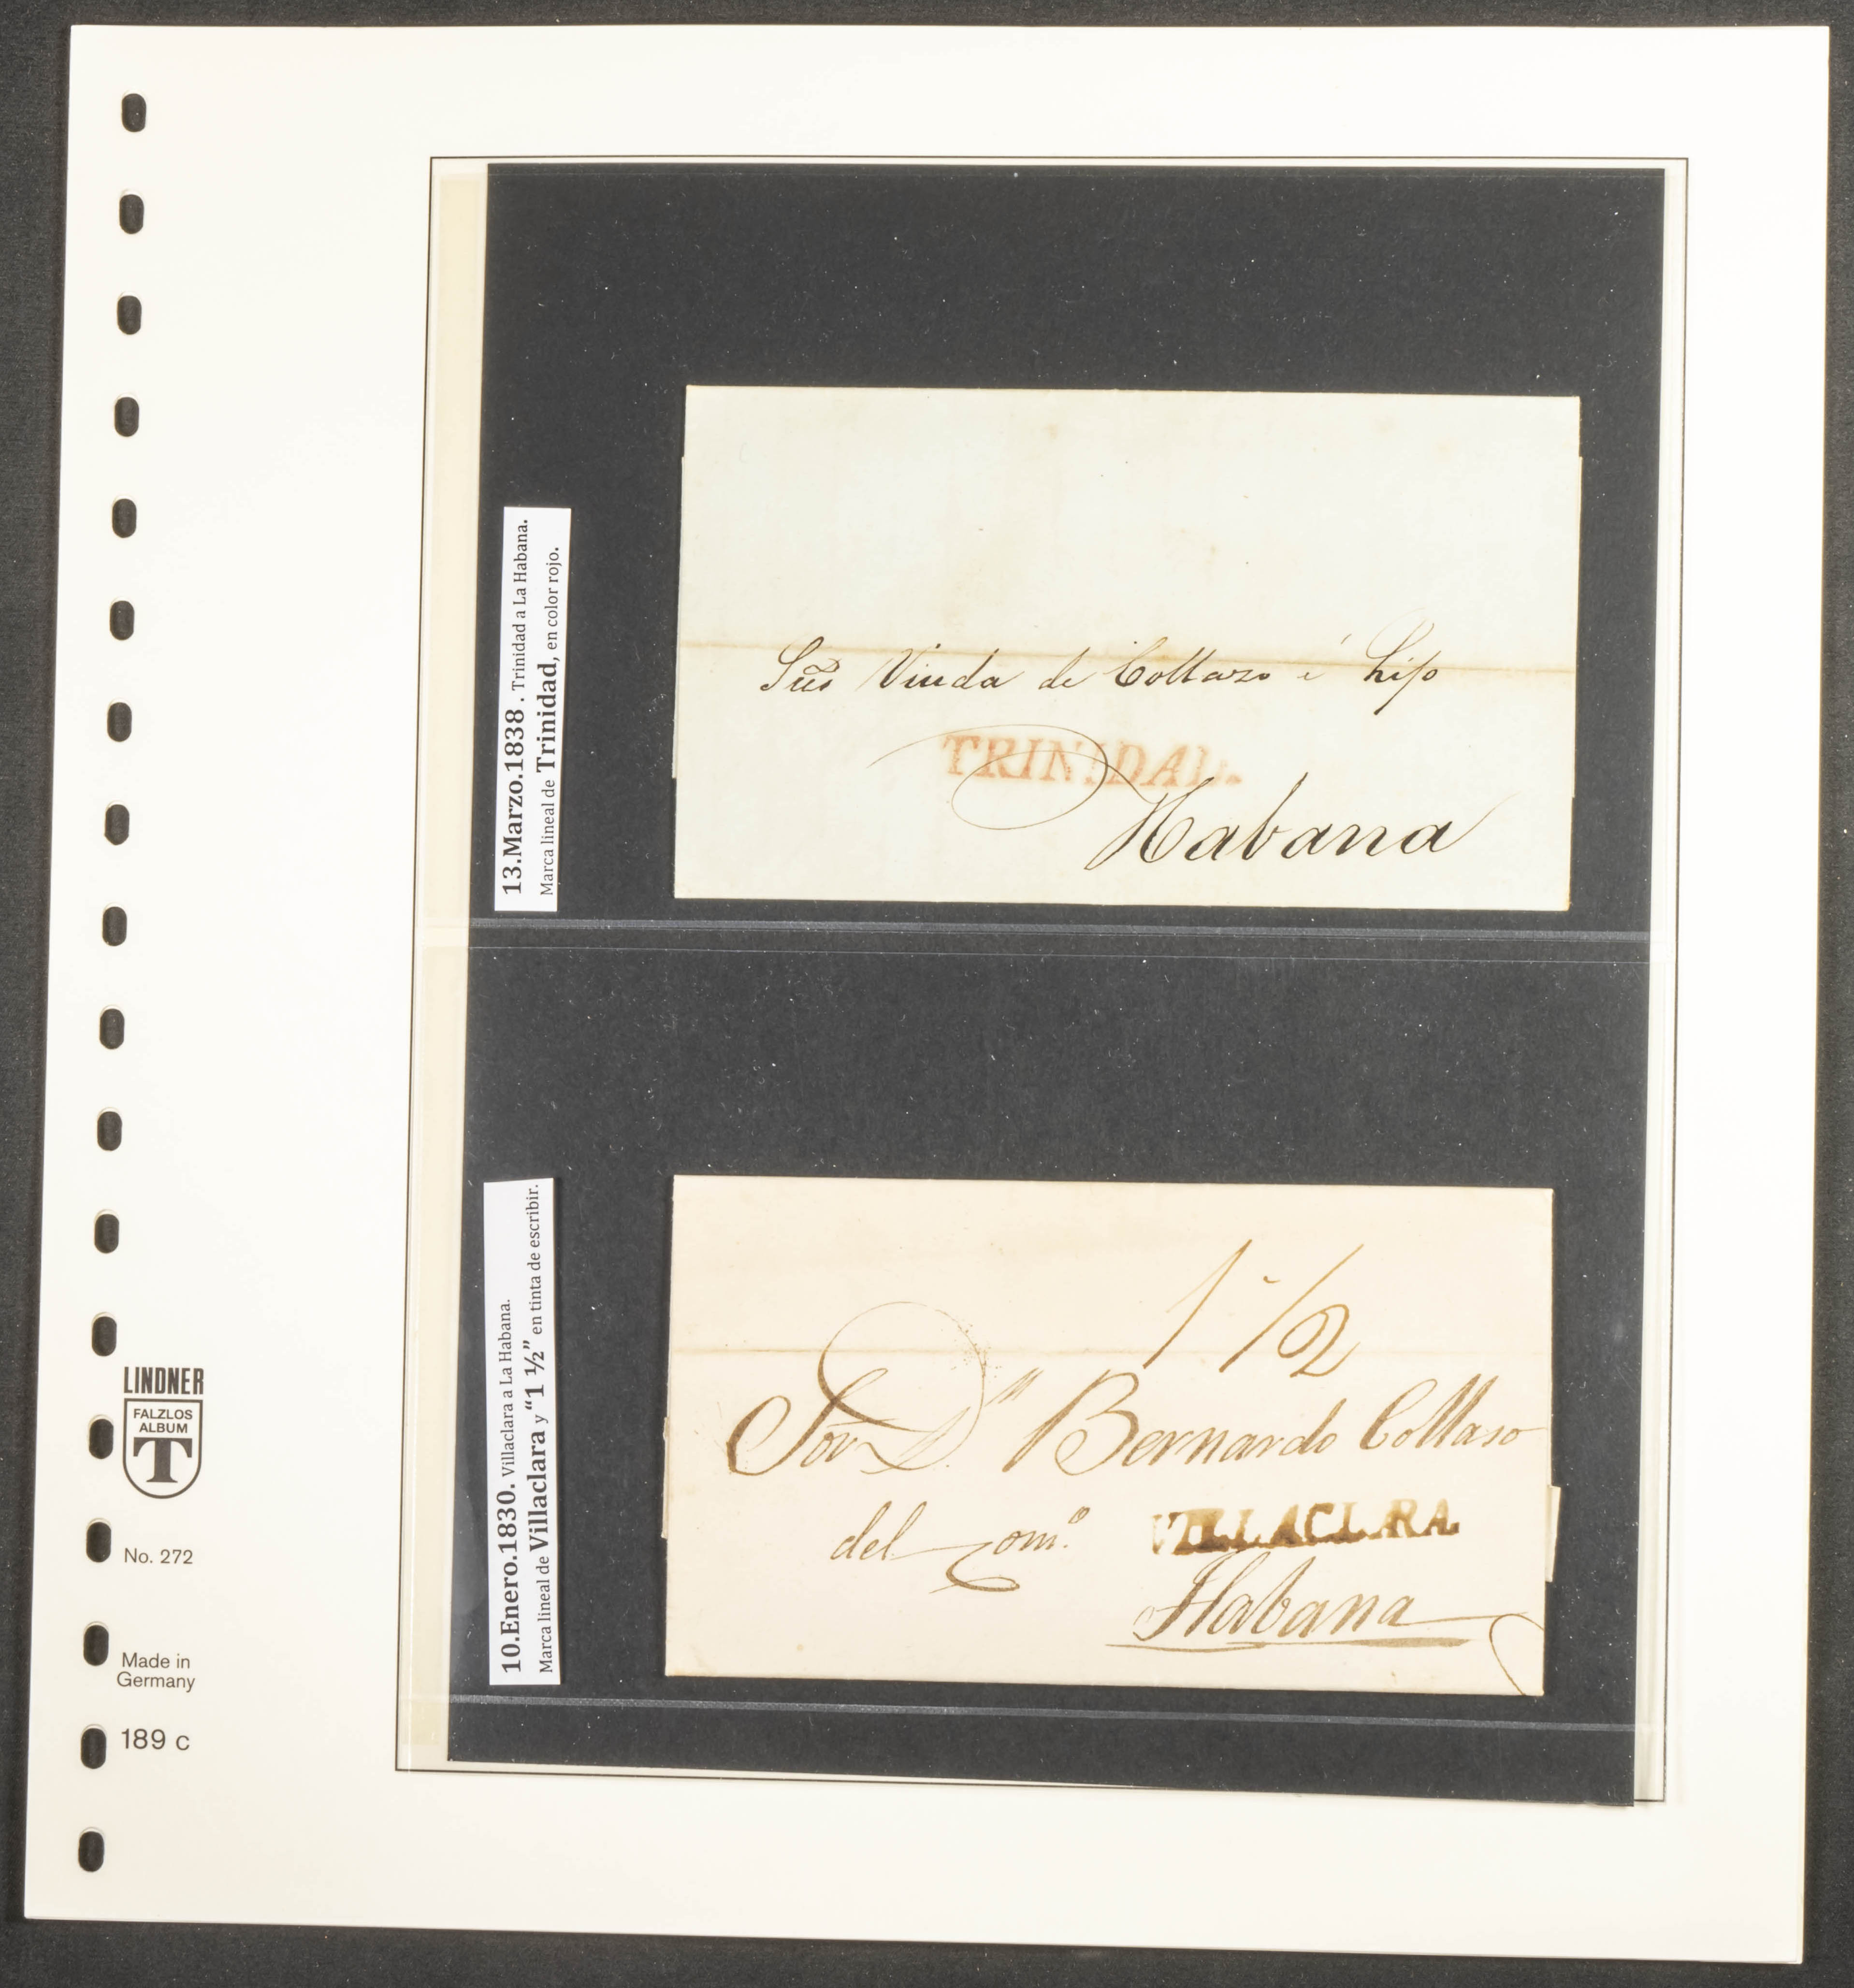 13.Marzo.1838 . Trinidad a La Habana.
Marca lineal de Trinidad, en color rojo.
Sres Viuda de Collazo é hijo
TRINIDAD.
Habana
10.Enero.1830. Villaclara a La Habana.
Marca lineal de Villaclara y "1 ½" en tinta de escribir.
1 1/2
Sor Dn Bernardo Collaso
del Comº
VILLACLARA
Habana
LINDNER
FALZLOS
ALBUM
T
No. 272
Made in
Germany
189 c